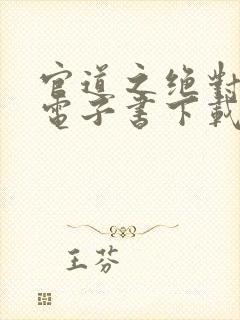 官道之绝對
電子書下載
王芬